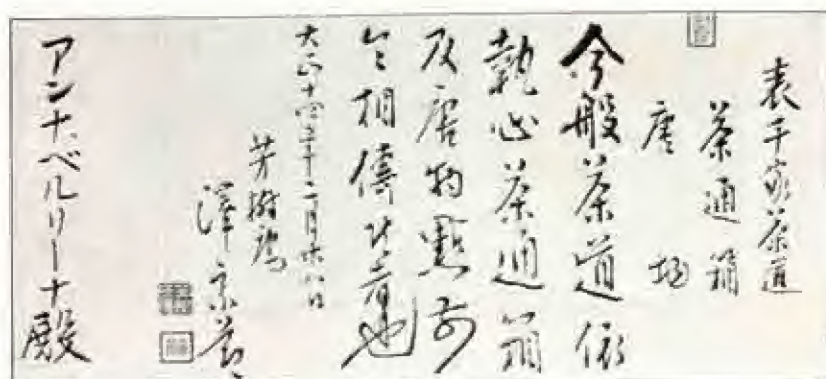 表千家茶道
茶通箱
唐物
今般茶道依
執心茶通箱
及唐物點前
令相傳候者也
大正十四年十二月廿八日
芳樹庵
澤宗
アンナ、ベルリーナ殿